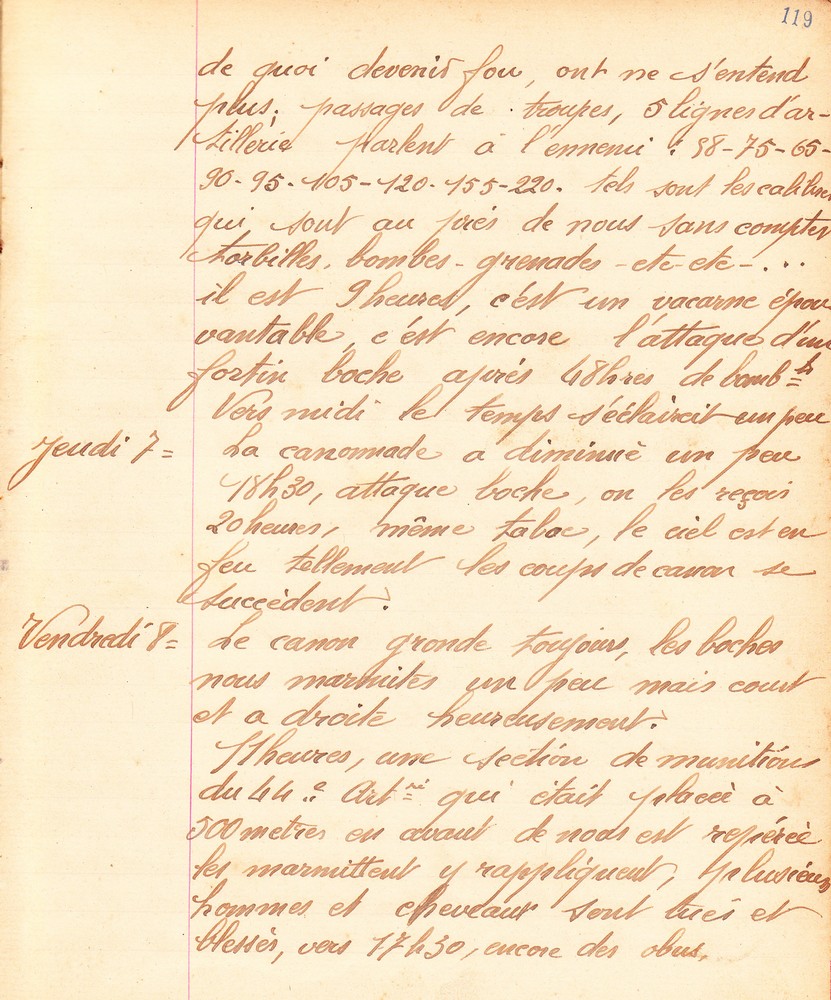 119
de quoi devenir fou, ont ne s'entend
plus, passages de troupes, 5 lignes d'ar-
tillerie parlent à l'ennemi : 58-75-65-
90-95-105-120-155-220. tels sont les calibres
qui sont au près de nous sans compter
torbilles, bombes - grenades - etc - etc - ...
il est 9 heures, c'est un vacarne épou
vantable, c'est encore l'attaque d'un
fortin boche aprés 48hres de bomb=t
Vers midi le temps s'éclaircit un peu
Jeudi 7 = La canonnade a diminué un peu
18h30, attaque boche, on les reçois
20 heures, même tabac, le ciel est en
feu tellement les coups de canon se
succèdent.
Vendredi 8 = Le canon gronde toujours, les boches
nous marmites un peu mais court
et a droite heureusement.
11 heures, une section de munitions
du 44.e Artrie qui était placée à
500 metres en avant de nous est repérée
les marmittent y rappliquent, plusieurs
hommes et cheveaux sont tués et
blessés, vers 17h30, encore des obus.